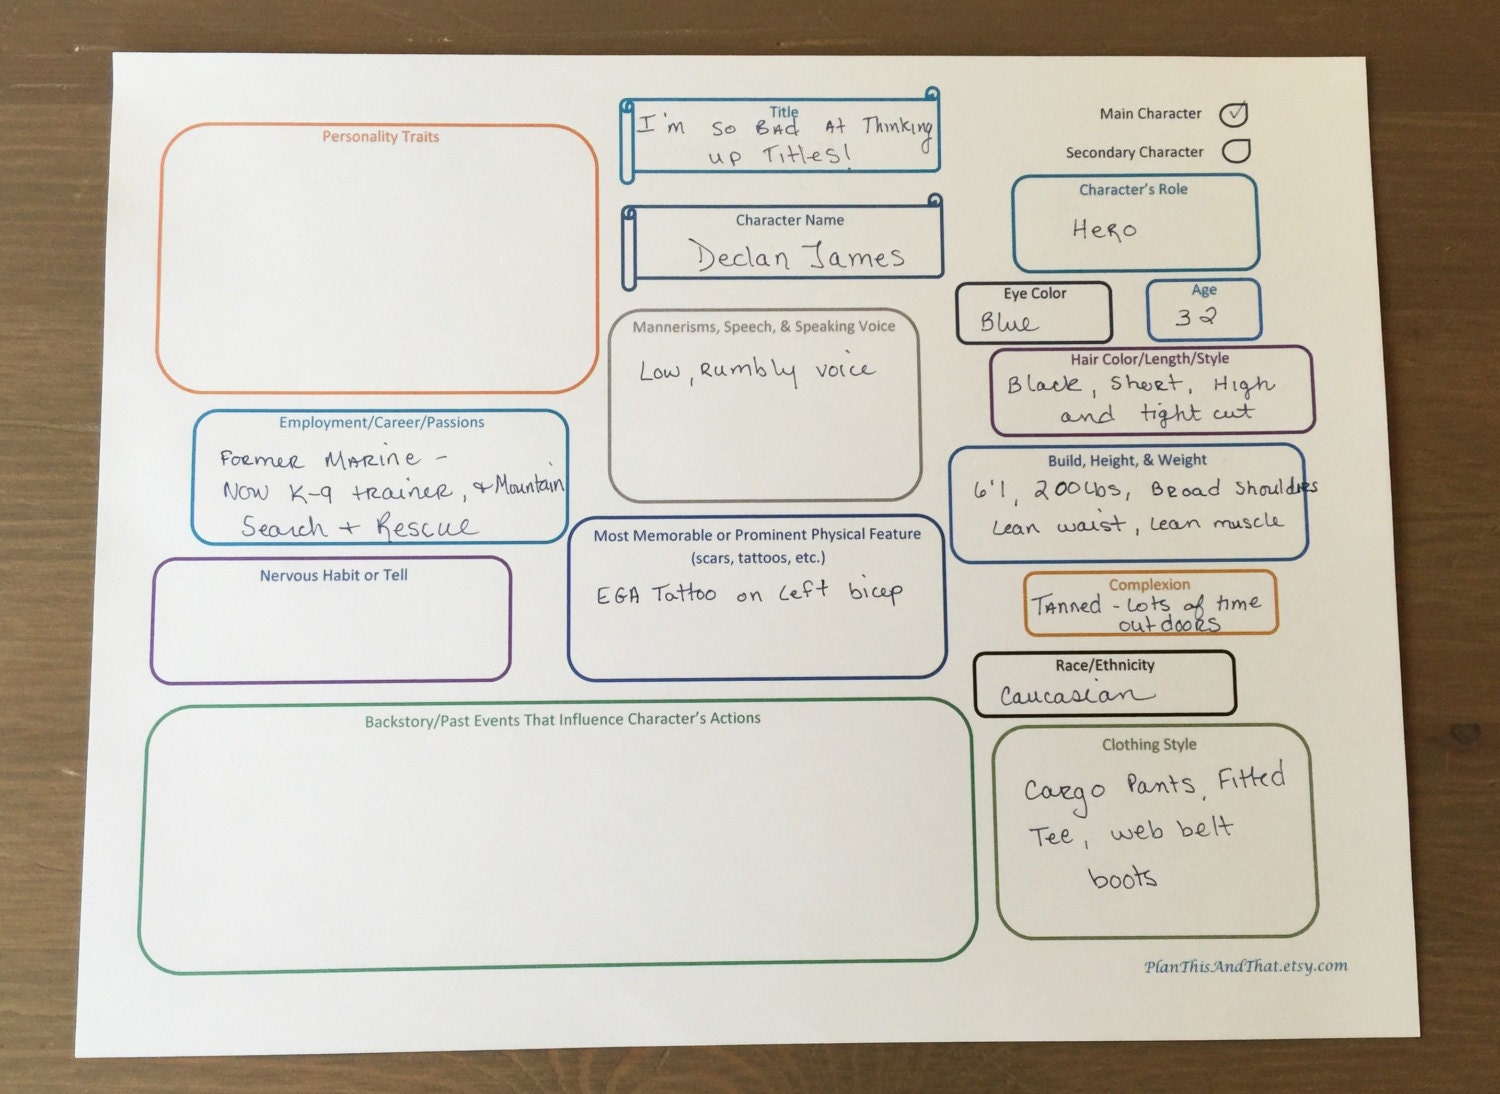 Title
I'm so BAd At Thinking
up Titles!
Main Character
Secondary Character
Personality Traits
Character's Role
Hero
Character Name
Declan James
Eye Color
Blue
Age
32
Mannerisms, Speech, & Speaking Voice
Low, Rumbly voice
Hair Color/Length/Style
Black, Short, High
and tight cut
Employment/Career/Passions
Former Marine -
Now K-9 trainer, & Mountain
Search + Rescue
Build, Height, & Weight
6'1, 200Lbs, Broad Shoulders
Lean waist, Lean muscle
Most Memorable or Prominent Physical Feature
(scars, tattoos, etc.)
EGA Tattoo on Left bicep
Nervous Habit or Tell
Complexion
Tanned - Lots of time
outdoors
Race/Ethnicity
Caucasian
Backstory/Past Events That Influence Character's Actions
Clothing Style
Cargo Pants, Fitted
Tee, web belt
boots
PlanThisAndThat.etsy.com